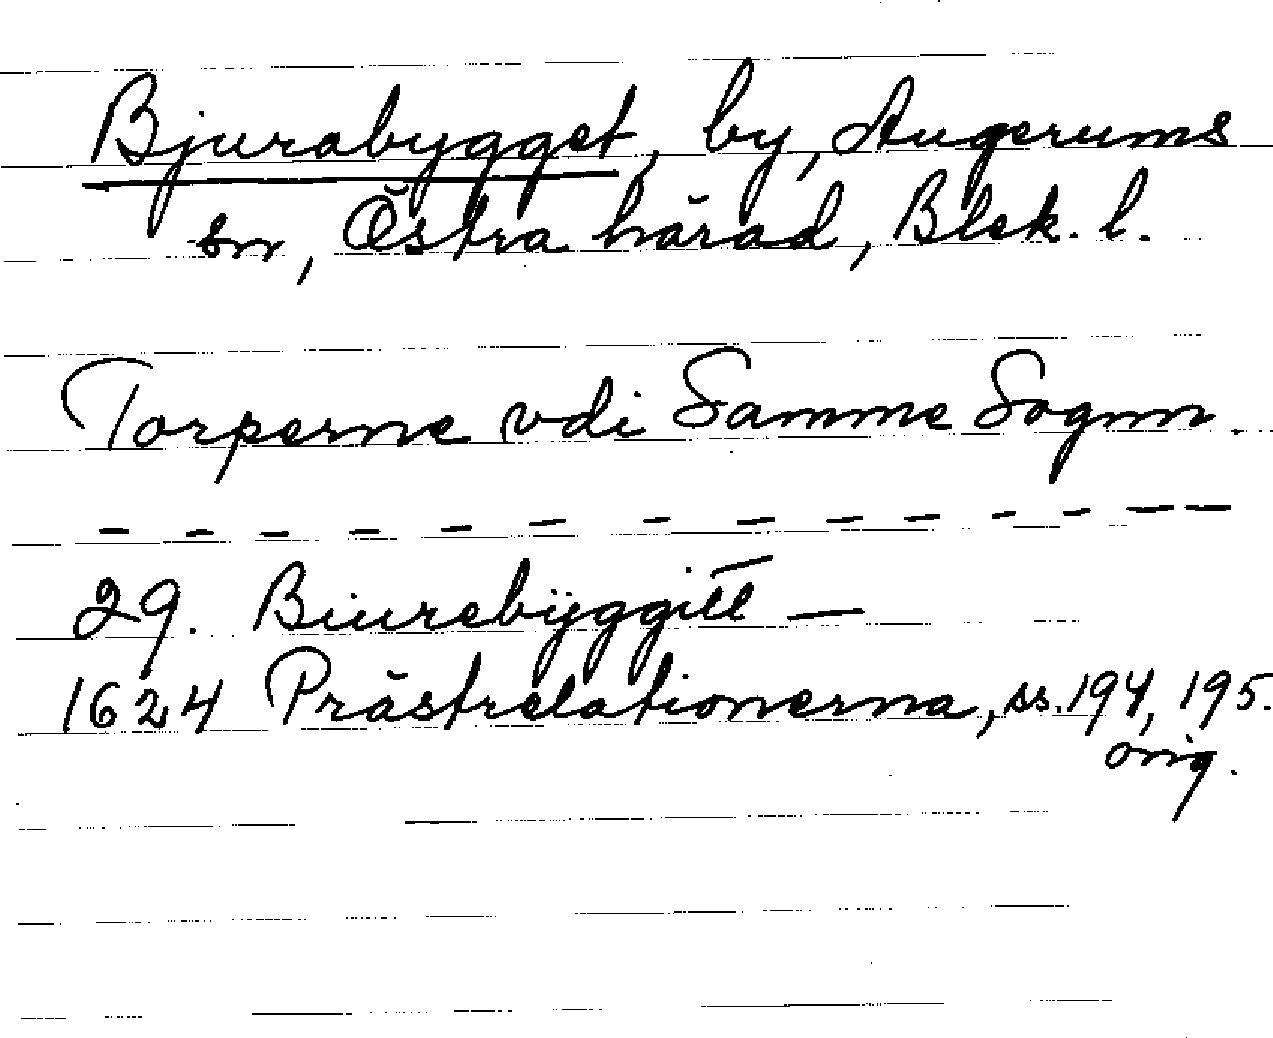 Bjurabygget, by, Augerums
sn, Östra härad, Blek. l.
Torperne vdi Samme Sognn.
- - - - - - - - - - - - - -
29. Biurebÿggitt —
1624 Prästrelationerna, ss. 194, 195.
orig.